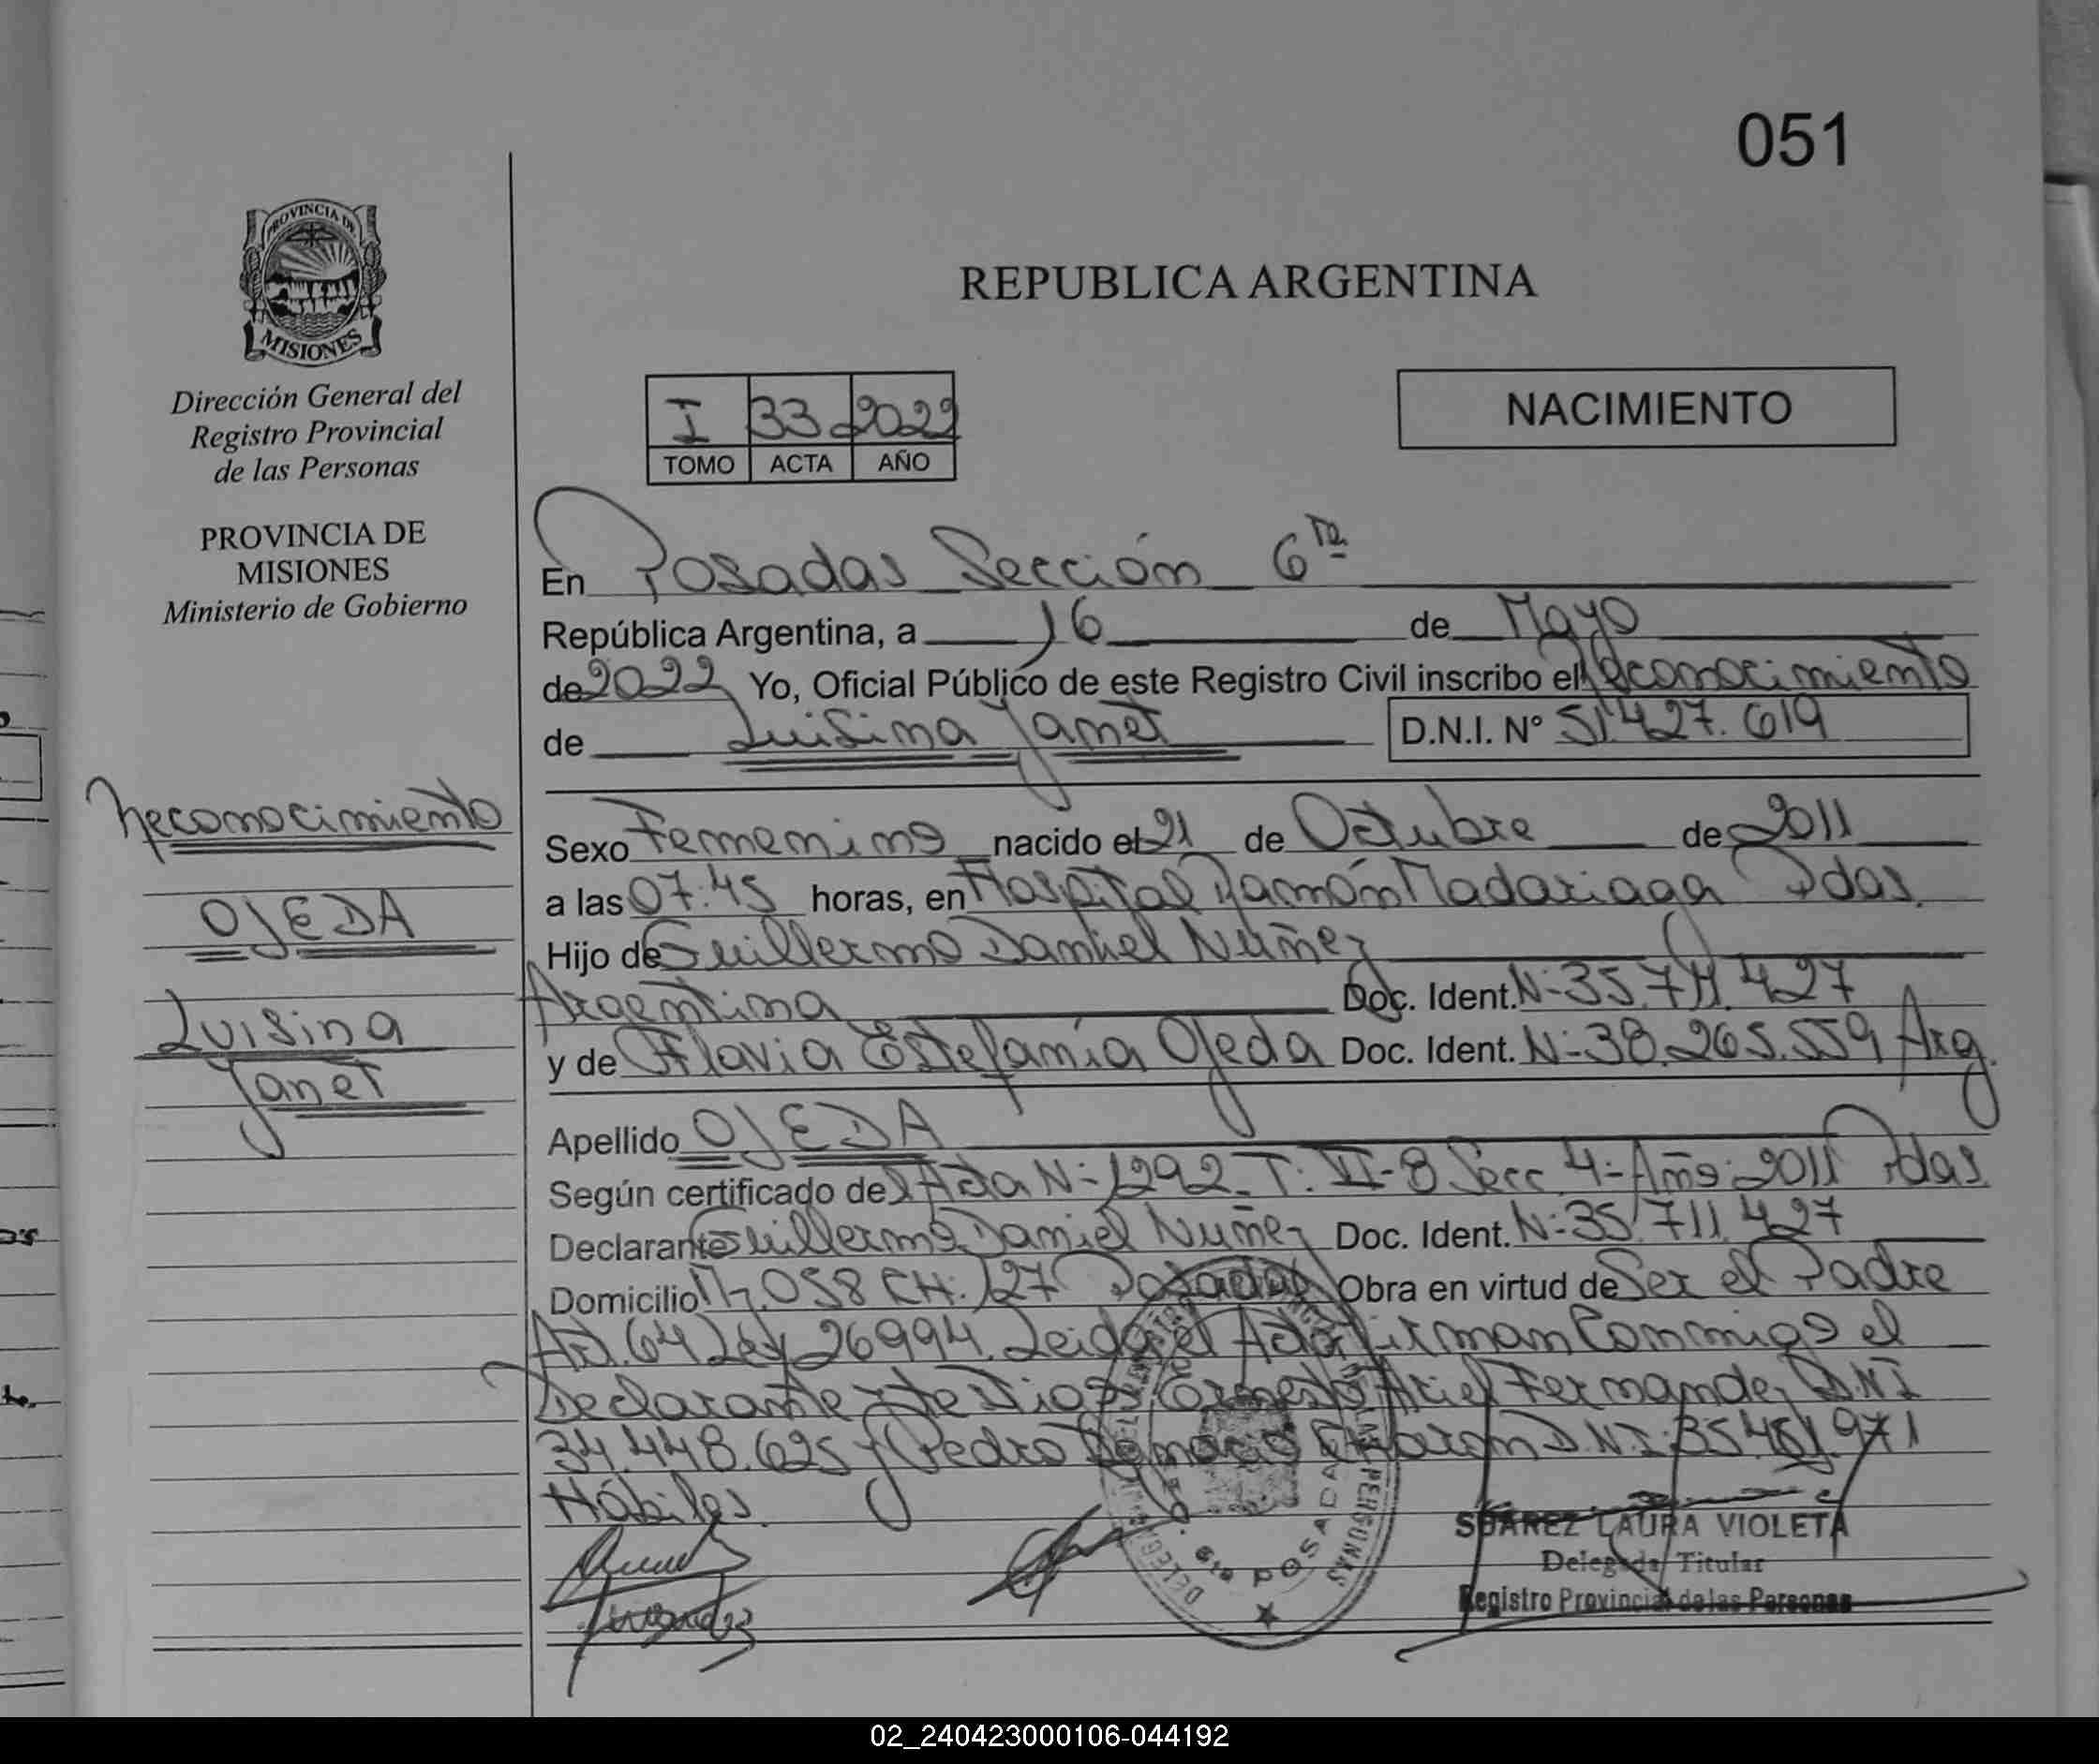 051
PROVINCIA DE
MISIONES
Dirección General del
Registro Provincial
de las Personas
PROVINCIA DE
MISIONES
Ministerio de Gobierno
Reconocimiento
OJEDA
Luisina
Janet
REPUBLICA ARGENTINA
I 33 2022
TOMO ACTA AÑO
NACIMIENTO
En Posadas Sección 6ta
República Argentina, a 16 de Mayo
de 2022 Yo, Oficial Público de este Registro Civil inscribo el Reconocimiento
de Luisina Janet D.N.I. Nº 51.427.619
Sexo Femenino nacido el 21 de Octubre de 2011
a las 07:45 horas, en Hospital Ramón Madariaga Pdas.
Hijo de Guillermo Daniel Nuñez
Argentina Doc. Ident. N-35.711.427
y de Flavia Estefanía Ojeda Doc. Ident. N-38.265.559 Arg.
Apellido OJEDA
Según certificado del Acta N-1292-T: VI-B Secc 4-Año: 2011 Pdas
Declarante Guillermo Daniel Nuñez Doc. Ident. N-35.711.427
Domicilio 058 CH: 127 Posadas Obra en virtud de Ser el Padre
Art. 64 Ley 26994. Leida el Acta Firman Conmigo el
Declarante y testigos Ernesto Ariel Fernandez D.N.I
34.448.625 y Pedro D.N.I:
Hábiles.
6ta POSADAS
SUAREZ LAURA VIOLETA
Delegada Titular
Registro Provincial de las Personas
02_240423000106-044192